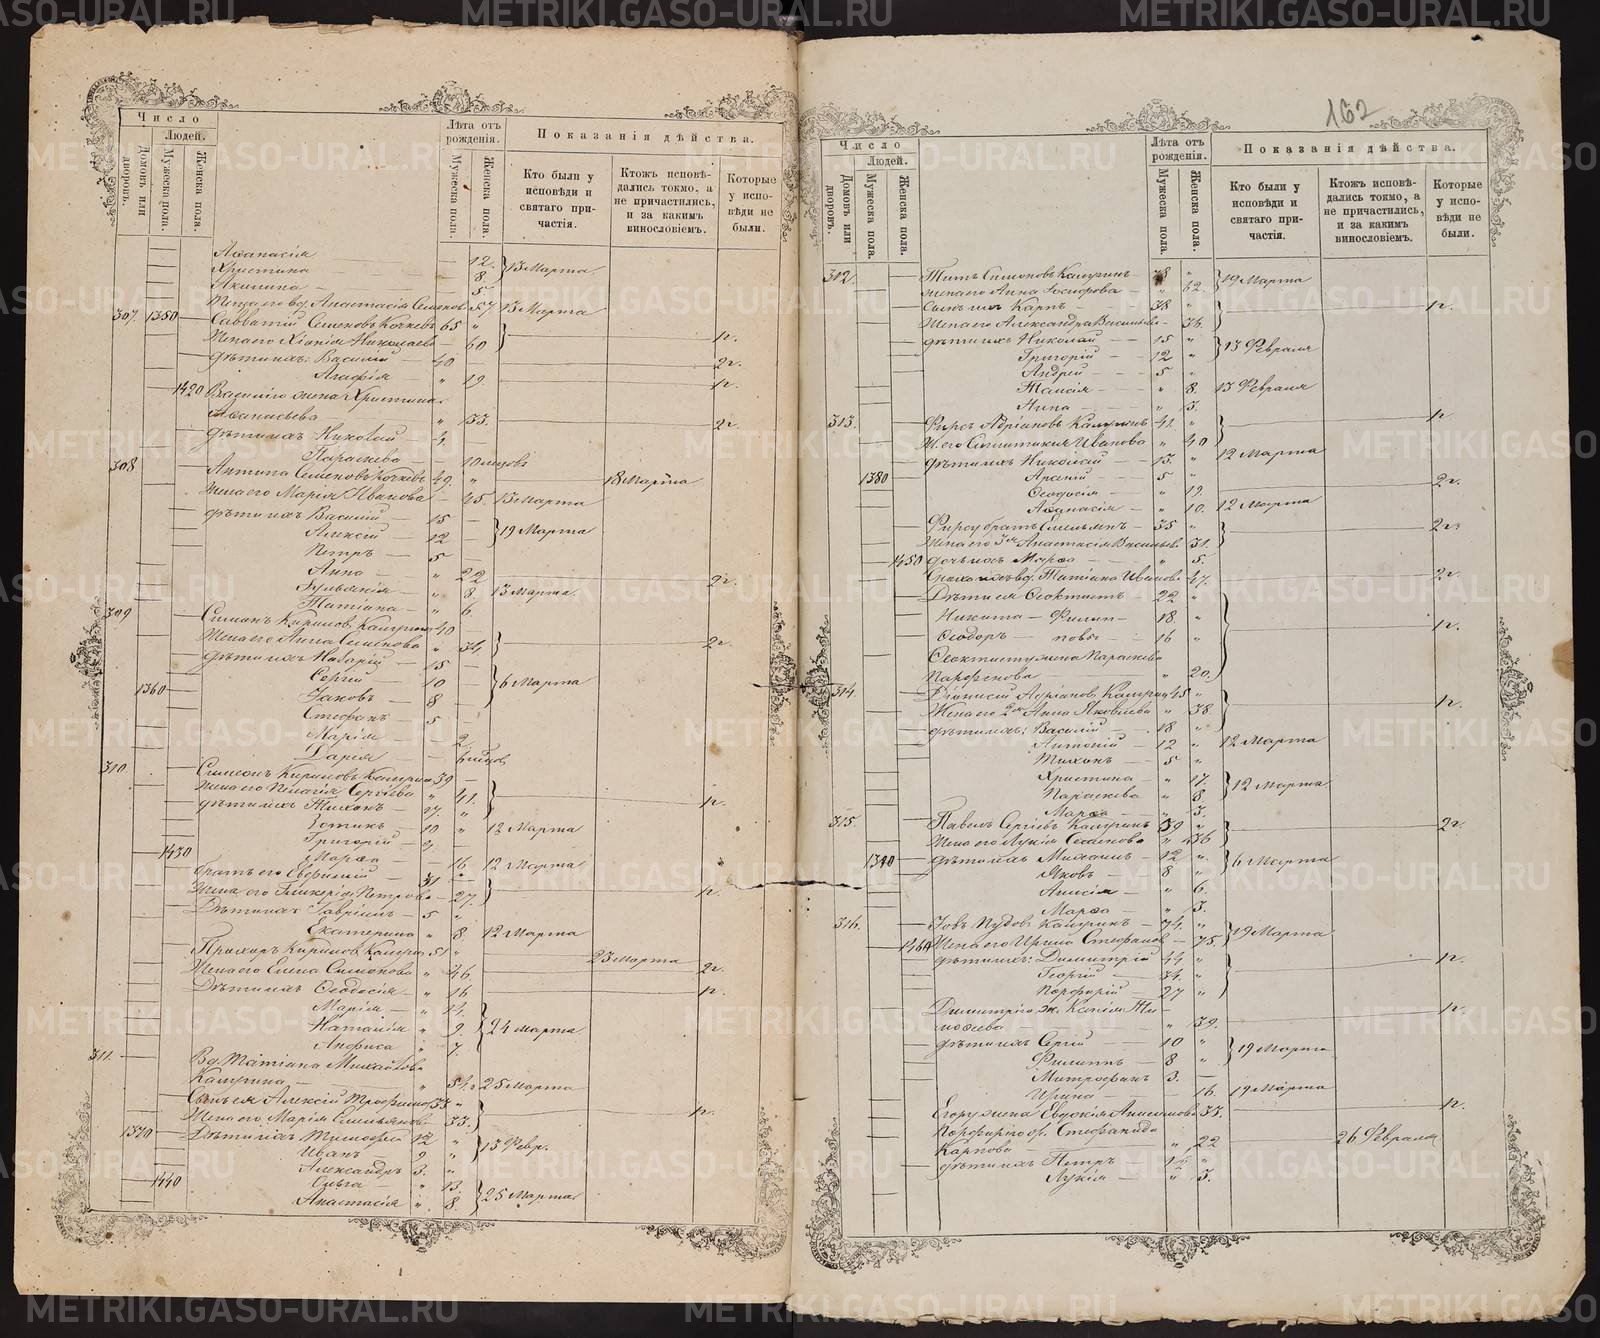 162
Число
Людей.
Домовъ или дворовъ.
Мужеска пола.
Женска пола.
Лѣта отъ рожденія.
Мужеска пола.
Женска пола.
Показанія дѣйства.
Кто были у исповѣди и святаго причастія.
Ктожъ исповѣдались токмо, а не причастились, и за какимъ винословіемъ.
Которые у исповѣди не были.
Аѳанасія 12.
Христина 8. 13 Марта
Акилина 5
Анастасія 57 13 Марта
307. 1350 Савватій Семеновъ 65 "
Жена его Хіонія Николаева 60 1г.
дѣти ихъ: Василій 40 2г.
Агафія " 19. 1г.
1420 Василія жена Христина
Аѳанасьева " 33. 2г.
дѣти ихъ Николай 4.
Параскева
308 Антипа Семеновъ 49. " 18 Марта
Жена его Марія Иванова 45. 13 Марта
дѣти ихъ Василій 15
Алексій 12 19 Марта
Петръ 5
Анна " 22 2г.
" 8. 13 Марта.
Татіана " 6.
309 Симонъ Кириловъ 40
Жена его Анна Семенова " 34. 2г.
дѣти ихъ 15
Сергій 10 6 Марта
1360 Іаковъ 8
Стефанъ 5
Марія 2.
Дарія
310. Симеонъ Кириловъ 39
Жена его Пелагія Сергіева " 41. 1г.
дѣти ихъ Тихонъ
Зотикъ 10 " 12 Марта
Григорій
1430 Марѳа 16. 12 Марта
братъ его Евфимій 31
Жена его Гликерія Петрова 27. 1г.
Дѣти ихъ Гавріилъ 5 "
Екатерина " 8. 12 Марта
Прохоръ Кириловъ 51 " 23 Марта
Жена его Елена Симонова " 46. 2г.
Дѣти ихъ Ѳеодосія " 16 1г.
Марія " 14.
Наталія " 9. 24 Марта
Анфиса " 7.
311. Вд. Татіана Михайлова
Калугина " 54. 25 Марта
Сынъ ея Алексій Трофимовъ 33 "
Жена его Марія Емельянова 33. 1г.
1370 Дѣти ихъ Тимоѳей 12 "
Иванъ 9 " 13 Февр.
Александръ 3. "
1440 Ольга " 13.
Анастасія " 8. 25 Марта
Число
Людей.
Домовъ или дворовъ.
Мужеска пола.
Женска пола.
Лѣта отъ рожденія.
Мужеска пола.
Женска пола.
Показанія дѣйства.
Кто были у исповѣди и святаго причастія.
Ктожъ исповѣдались токмо, а не причастились, и за какимъ винословіемъ.
Которые у исповѣди не были.
312. Титъ Симоновъ Калугинъ "
жена его Анна Іосифова " 62. 19 Марта
Сынъ ихъ Карпъ 38 "
Жена его Александра Васильева 36. 1г.
дѣти ихъ Николай 15 "
Григорій 12 " 13 Февраля
Андрей 5 "
Таисія " 8. 13 Февраля
Анна " 3.
313. Фирсъ Адріановъ Калугинъ 41. "
Ж. его Синклитикія Иванова " 40 1г.
дѣти ихъ 13. " 12 Марта
1380 Арсеній 5 "
Ѳеодосія " 19. 2г.
Аѳанасія " 10. 12 Марта
Фирсу братъ Емельянъ 35 " 2г.
Жена его Анастасія Васильева 31.
1450 дочь ихъ Марѳа " 5.
вд. Татіана Иванова 47. 2г.
Дѣти ея Ѳеоктистъ 22 "
Никита 18. "
Ѳеодоръ 16 " 1г.
Ѳеоктиста жена Параскева
Парфенова " 20.
314. Діонисій Адріановъ Калугинъ 45 "
Жена его Анна Яковлева " 38. 1г.
дѣти ихъ: Василій 18 "
Антоній 12 " 12 Марта
Тихонъ 5 "
Христина " 17.
Параскева " 8. 12 Марта
Марѳа " 3.
315. Павелъ Сергіевъ Калугинъ 39 " 2г.
Жена его Лукія Семенова " 36
1390 дѣти ихъ Михаилъ 12 "
Яковъ 8 " 6 Марта
Анисія " 6.
Марѳа " 3.
316. Іовъ Пудовъ Калугинъ 74. "
1460 Жена его Ирина Стефанова 75. 19 Марта
дѣти ихъ: Димитрій 44 " 1г.
Георгій 34. "
Порфирій 27 "
Димитрія ж. Ксенія Тимоѳеева " 39. 1г.
дѣти ихъ Сергій 10 "
Филиппъ 8 " 19 Марта
Митрофанъ 3.
Ирина 16. 19 Марта
Егору жена Евдокія Анисимова 33. 1г.
Порфирію ж. Стефанида
Карпова " 22 26 Февраля
дѣти ихъ Петръ "
Лукія " 3.
METRIKI.GASO-URAL.RU